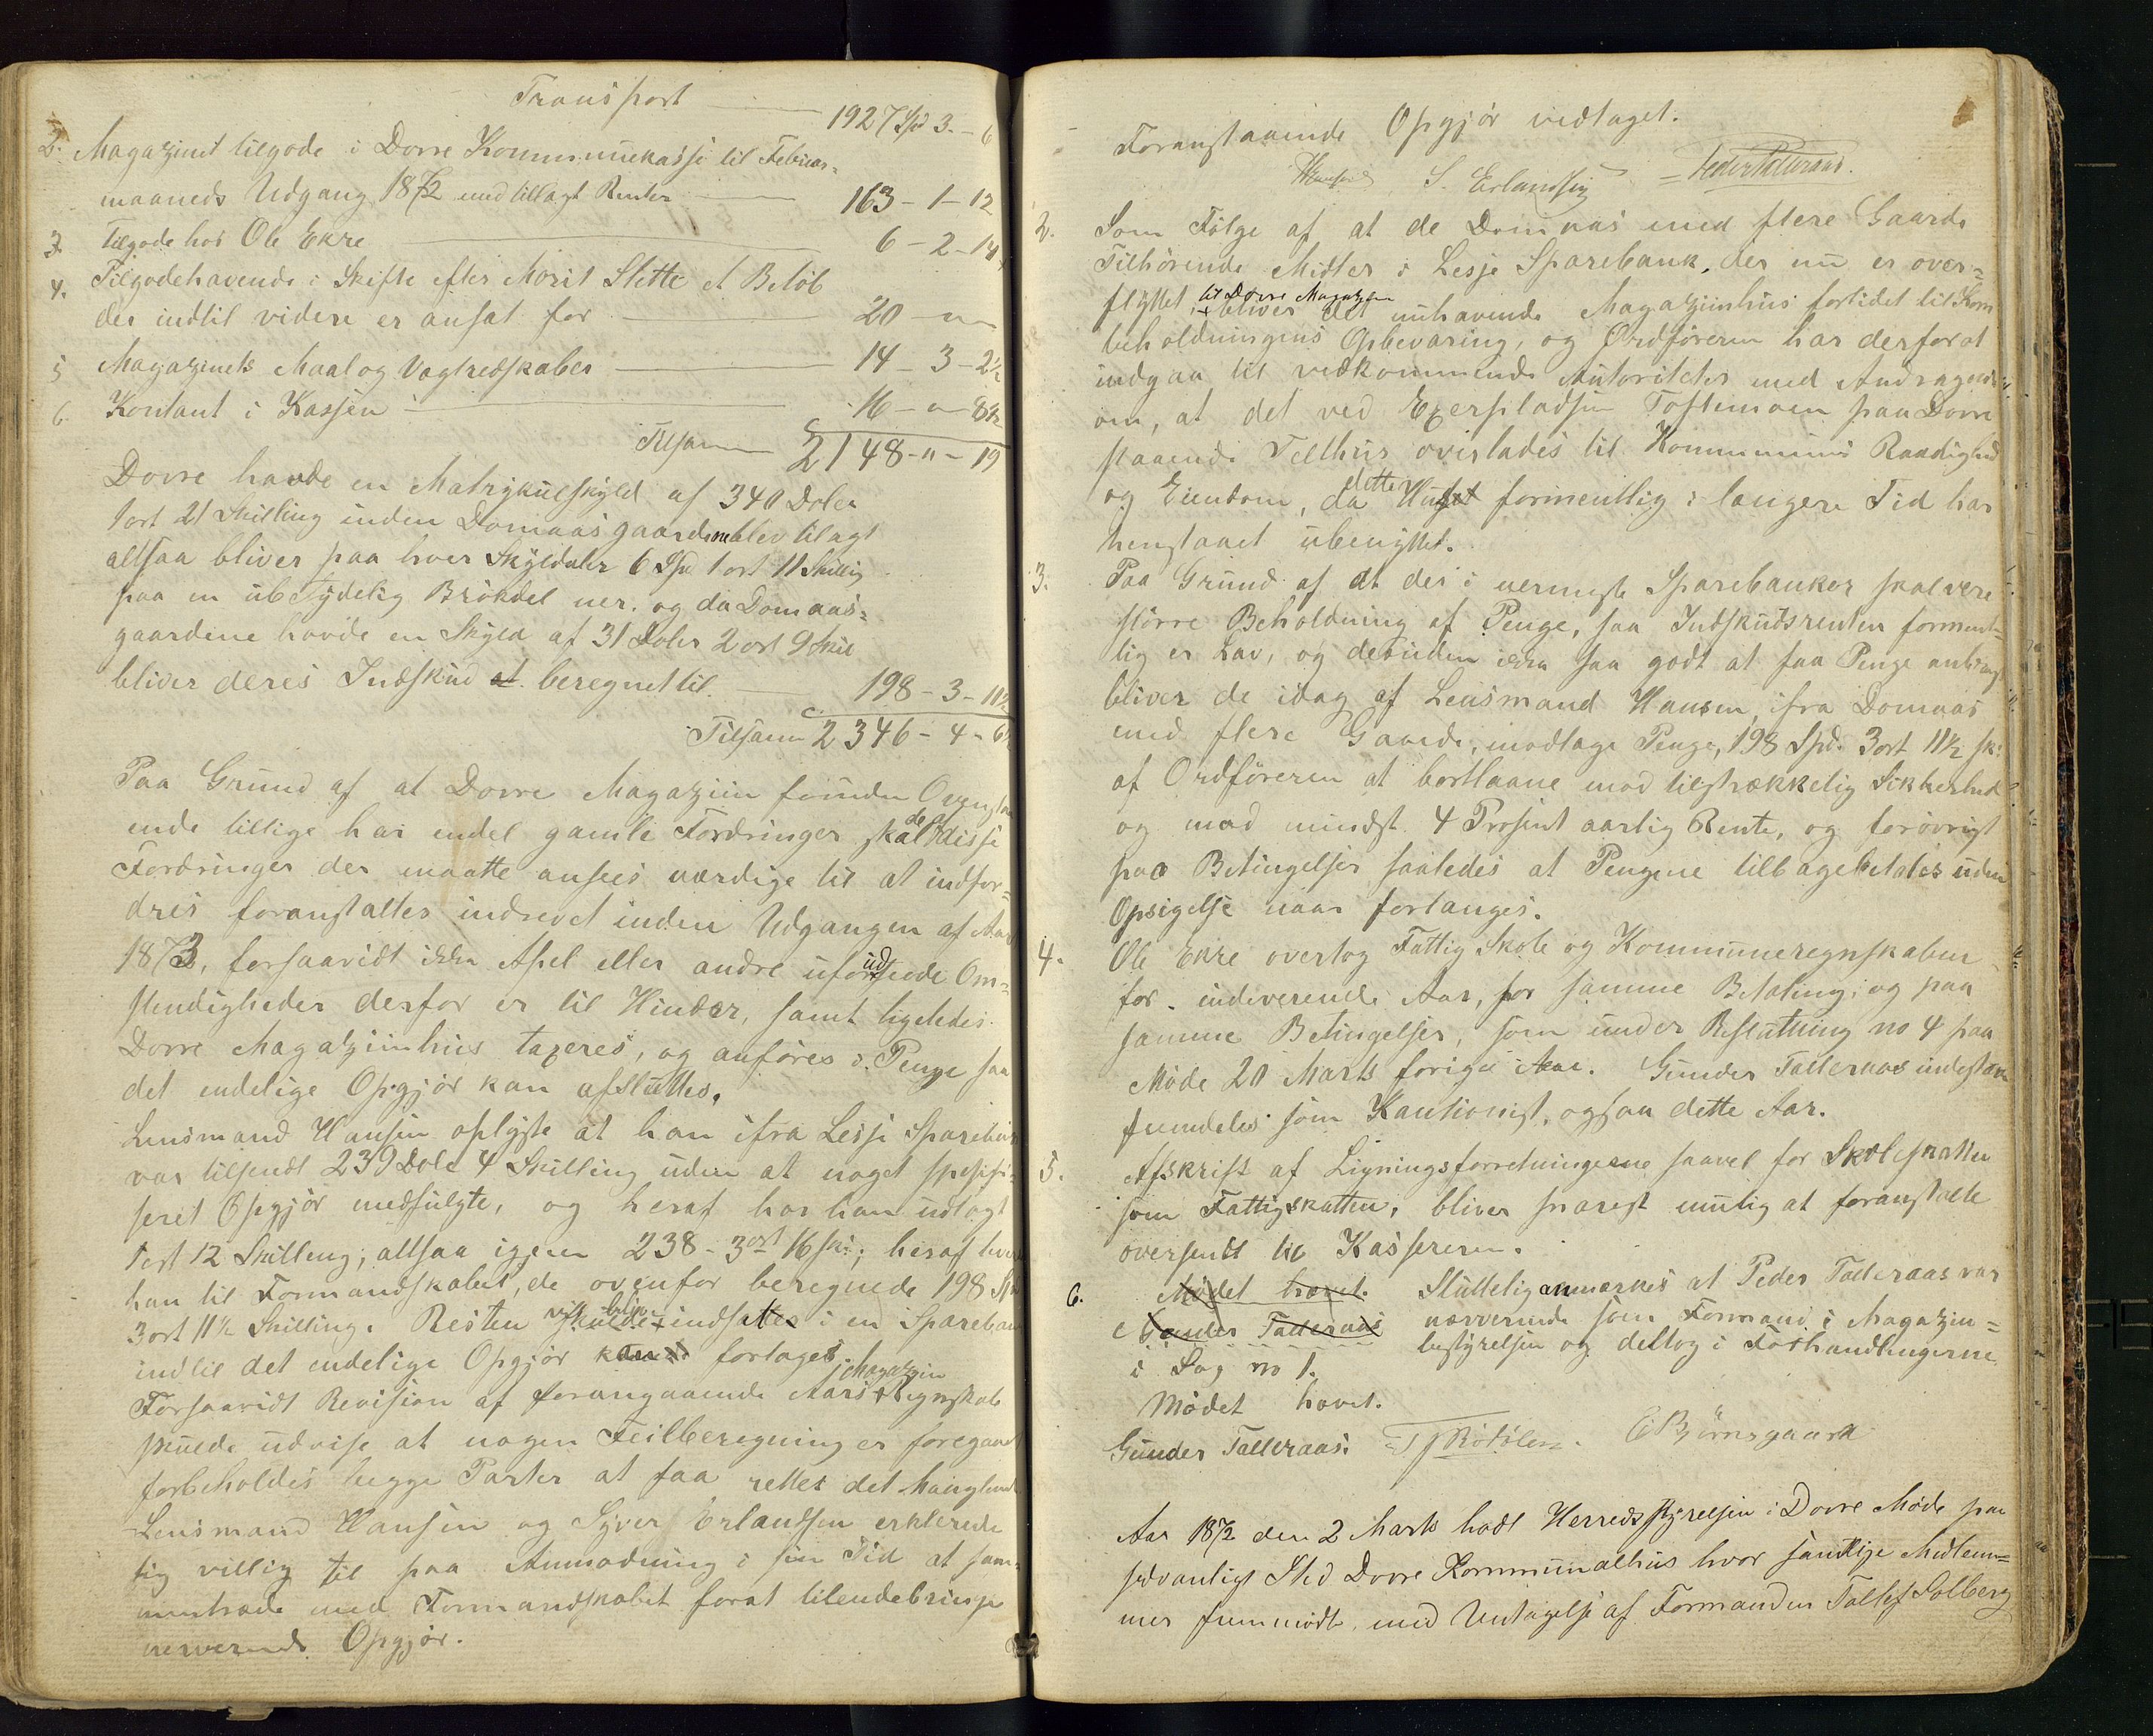 Transport 1927 Spd 3. - 6
2. Magazinet tilgode i Dovre Kommunekasse til Februar=
maaneds Udgang 1872 med tillagt Renter 163 - 1 - 12
3. Tilgode hos Ole Ekre 6 - 2 - 14
4. Tilgodehavende i Skifte efter Marit Slette et Beløb
der indtil videre er ansat for 20 - " -
5 Magazinets Maal og Vægtredskaber 14 - 3 - 2½
6. Kontant i Kassen 16 - " - 8½
Tilsam 2148 - " - 19
Dovre havde en Matrykulskyld af 340 Daler
1 ort 21 Skilling inden Domaasgaardene blev tilagt
altsaa bliver paa hver Skyldaler 6 Spd 1 ort 11 Skillig
paa en ubetydelig Brøkdel nær. og da Domaas=
gaardene havde en Skyld af 31 Daler 2 ort 9 Skil
bliver deres Indskud at beregnet til. 198 - 3 - 11½
Tilsam 2346 - 4 - 6½
Paa Grund af at Dovre Magaziin foruden Ovenstaa
ende tillige har endel gamle Fordringer skal de af disse
Fordringer der maatte ansees værdige til at indfor=
dres foranstaltes indrevet inden Udgangen af Aar
1873, forsaavidt ikke Apel eller andre uforudseede Om=
stendigheder derfor er til Hinder, samt ligeledes
Dovre Magaziinhus taxeres, og anføres i Penge saa
det endelige Opgjør kan afsluttes.
Lensmand Hansen oplyste at han ifra Lesje Sparebank
var tilsendt 239 Dale 4 Skilling uden at noget spesifi=
seret Opgjør medfulgte, og heraf har han udlagt
1 ort 12 Skilling, altsaa igjen 238 - 3 ort 16 sk; heraf
han til Formandskabet, de ovenfor beregnede 198 Spd
3 ort 11½ Skilling. Resten vil skulde blive indsattes i en Sparebank
indtil det endelige Opgjør kan foretages.
Forsaavidt Revision af foranganende Aars Magazin Regnskab
skulde udvise at nogen Feilberegning er foregaaet
forbeholdes begge Parter at faa rettet det Manglende
Lensmand Hansen og Syver Erlandsen erklerede
sig villig til paa Anmodning i sin Tid at sam=
mentræde med Formandskabet forat tilendebringe
nerverende Opgjør.
Foranstaaende Opgjør vedtaget.
Hansen S. Erlandsen Peder Talleraas.
2. Som Følge af at de Domaas med flere Gaarde
Tilhørende Midler i Lesje Sparebank, der nu er over=
flyttet, til Dovre Magazin bliver det nuhavende Magaziinhus forlidet til Korn
beholdningens Opbevaring, og Ordføreren har derfor at
indgaa til vedkommende Autoriteter med Andragende
om, at det ved Exerpladsen Toftemoen paa Dovre
staaende Telthus overlades til Kommunens Raadighed
og Eiendom, da dette Huset formentlig i længere Tid har
henstaaet ubenyttet.
3. Paa Grund af at der i nermeste Sparebanker skal vere
større Beholdning af Penge, saa Indskudsrenten forment=
lig er Lav, og desuden ikke saa godt at faa Penge anbragt
bliver de idag af Lensmand Hansen, ifra Domaas
med flere Gaarde, modtage Penge, 198 Spd. 3 ort 11½ sk:
af Ordføreren at bortlaane mod tilstrækkelig Sikkerhed
og mod mindst 4 Prosent aarlig Rente, og forøvrigt
paa Betingelser saaledes at Pengene tilbagebetales uden
Opsigelse naar forlanges.
4. Ole Ekre overtog Fattig Skole og Kommuneregnskaben
for indeverende Aar, for samme Betaling, og paa
samme Betingelser, som under Beslutning no 4 paa
Møde 20 Marts forige Aar. Gunder Talleraas indestaar
fremdeles som Kautionist, ogsaa dette Aar.
5. Afskrift af Ligningsforretningerne saavel for Skoleskatten
som Fattigskatten, bliver snarest mulig at foranstalte
oversendt til Kassereren.
6. Mødet hævet. Slutteliganmærkes at Peder Talleraas var
Gunder Talleraas nærverende som Formand i Magazin=
bestyrelsen og deltog i Forhandlingerne
i Sag no 1.
Mødet hævet.
Gunder Talleraas. E Bjørnsgaard
Aar 1872 den 2 Marts holdt Herredsstyrelsen i Dovre Møde paa
sedvanligt Sted Dovre Kommunalhus hvor samtlige Medlem=
mer fremmødte, med Untagelse af Formanden Tollef Solberg